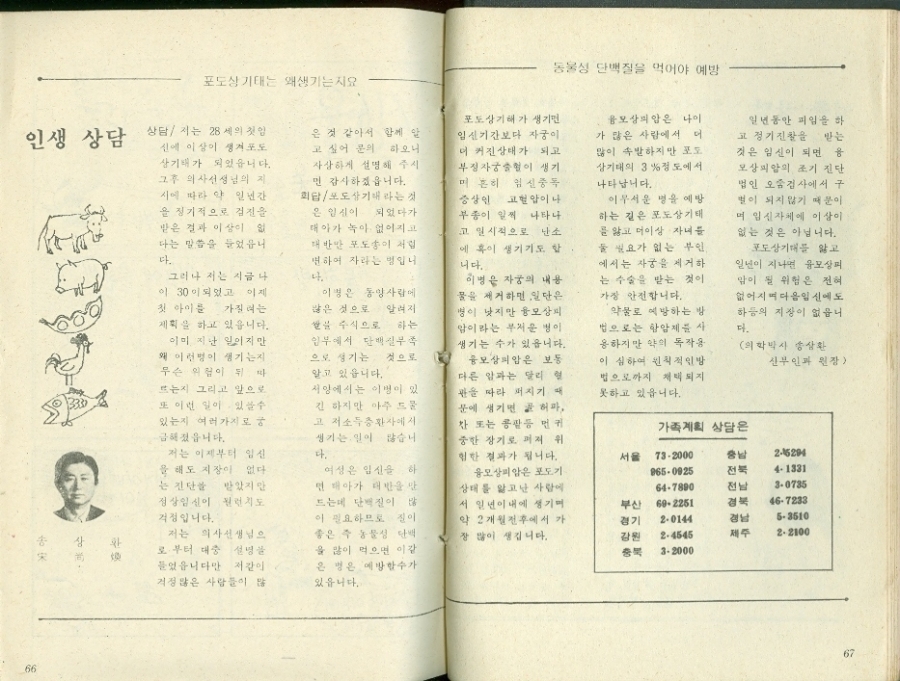 포도상기태는 왜생기는지요
인생 상담
상담/ 저는 28 세의 첫임
신에 이상이 생겨포도
상기태가 되었읍니다.
그후 의사선생님의 지
시에 따라 약 일년간
을 정기적으로 검진을
받은 결과 이상이 없
다는 말씀을 들었읍니
다.
그러나 저는 지금 나
이 30이되었고 이제
첫 아이를 가질려는
계획을 하고 있읍니다.
이미 지난 일이지만
왜 이런병이 생기는지
무슨 위험이 뒤 따
르는지 그리고 앞으로
또 이런 일이 있을수
있는지 여러가지로 궁
금해졌읍니다.
저는 이제부터 임신
을 해도 지장이 없다
는 진단을 받았지만
정상임신이 될런지도
걱정입니다.
저는 의사선생님으
로 부터 대충 설명을
들었읍니다만 저같이
걱정많은 사람들이 많
은 것 같아서 함께 알
고 싶어 문의 하오니
자상하게 설명해 주시
면 감사하겠읍니다.
회답/포도상기태라는것
은 임신이 되었다가
태아가 녹아 없어지고
태반만 포도송이 처럼
변하여 자라는 병입니
다.
이병은 동양사람에
많은 것으로 알려저
쌀을 주식으로 하는
임부에서 단백질부족
으로 생기는 것으로
알고 있읍니다.
서양에서는 이병이 있
긴 하지만 아주 드물
고 저소득층환자에서
생기는 일이 많습니
다.
여성은 임신을 하
면 태아가 태반을 만
드는데 단백질이 많
이 필요하므로 질이
좋은 즉 동물성 단백
을 많이 먹으면 이같
은 병은 예방할수가
있읍니다.
송 상 환
宋 尙 煥
66
동물성 단백질을 먹어야 예방
포도상기태가 생기면
임신기간보다 자궁이
더 커진상태가 되고
부정자궁출혈이 생기
며 흔히 임신중독
증상인 고혈압이나
부종이 일찍 나타나
고 일시적으로 난소
에 혹이 생기기도 합
니다.
이병은 자궁의 내용
물을 제거하면 일단은
병이 낫지만 융모상피
암이라는 무서운 병이
생기는 수가 있읍니다.
융모상피암은 보통
다른 암과는 달리 혈
관을 따라 퍼지기 때
문에 생기면 곧 허파,
간 또는 콩팥등 먼귀
중한 장기로 퍼져 위
험한 결과가 됩니다.
융모상피암은 포도기
상태를 앓고난 사람에
서 일년이내에 생기며
약 2개월전후에서 가
장 많이 생깁니다.
융모상피암은 나이
가 많은 사람에서 더
많이 속발하지만 포도
상기태의 3%정도에서
나타납니다.
이무서운 병을 예방
하는 길은 포도상기태
를 앓고 더이상 자녀를
둘 필요가 없는 부인
에서는 자궁을 제거하
는 수술을 받는 것이
가장 안전합니다.
약물로 예방하는 방
법으로는 항암제를 사
용하지만 약의 독작용
이 심하여 원칙적인방
법으로까지 채택되지
못하고 있읍니다.
일년동안 피임을 하
고 정기진찰을 받는
것은 임신이 되면 융
모상피암의 조기 진단
법인 오줌검사에서 구
별이 되지않기 때문이
며 임신자체에 이상이
있는 것은 아닙니다.
포도상기태를 앓고
일년이 지나면 융모상피
암이 될 위험은 전혀
없어지며다음임신에도
하등의 지장이 없읍니
다.
(의학박사 송상환
산부인과 원장)
가족계획 상담은
서울 73·2000 충남 2·5294
965·0925 전북 4·1331
64·7890 전남 3·0735
부산 69·2251 경북 46·7233
경기 2·0144 경남 5·3510
강원 2·4545 제주 2·2100
충북 3·2000
67